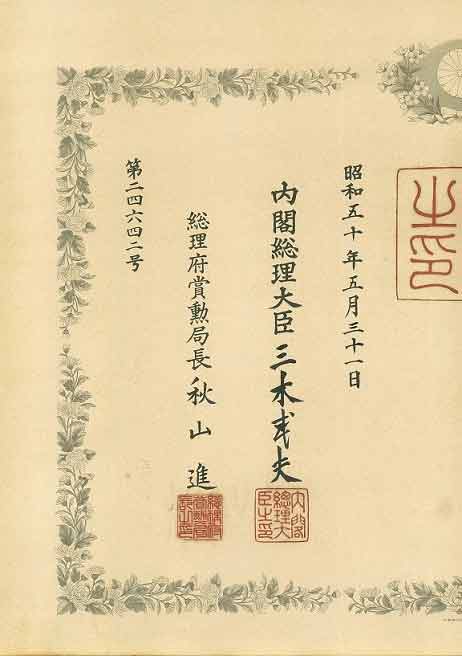 昭和五十年五月三十一日
内閣総理大臣 三木武夫
総理府賞勲局長 秋山進
第二四六四二号
之印
内閣
総理大
臣之印